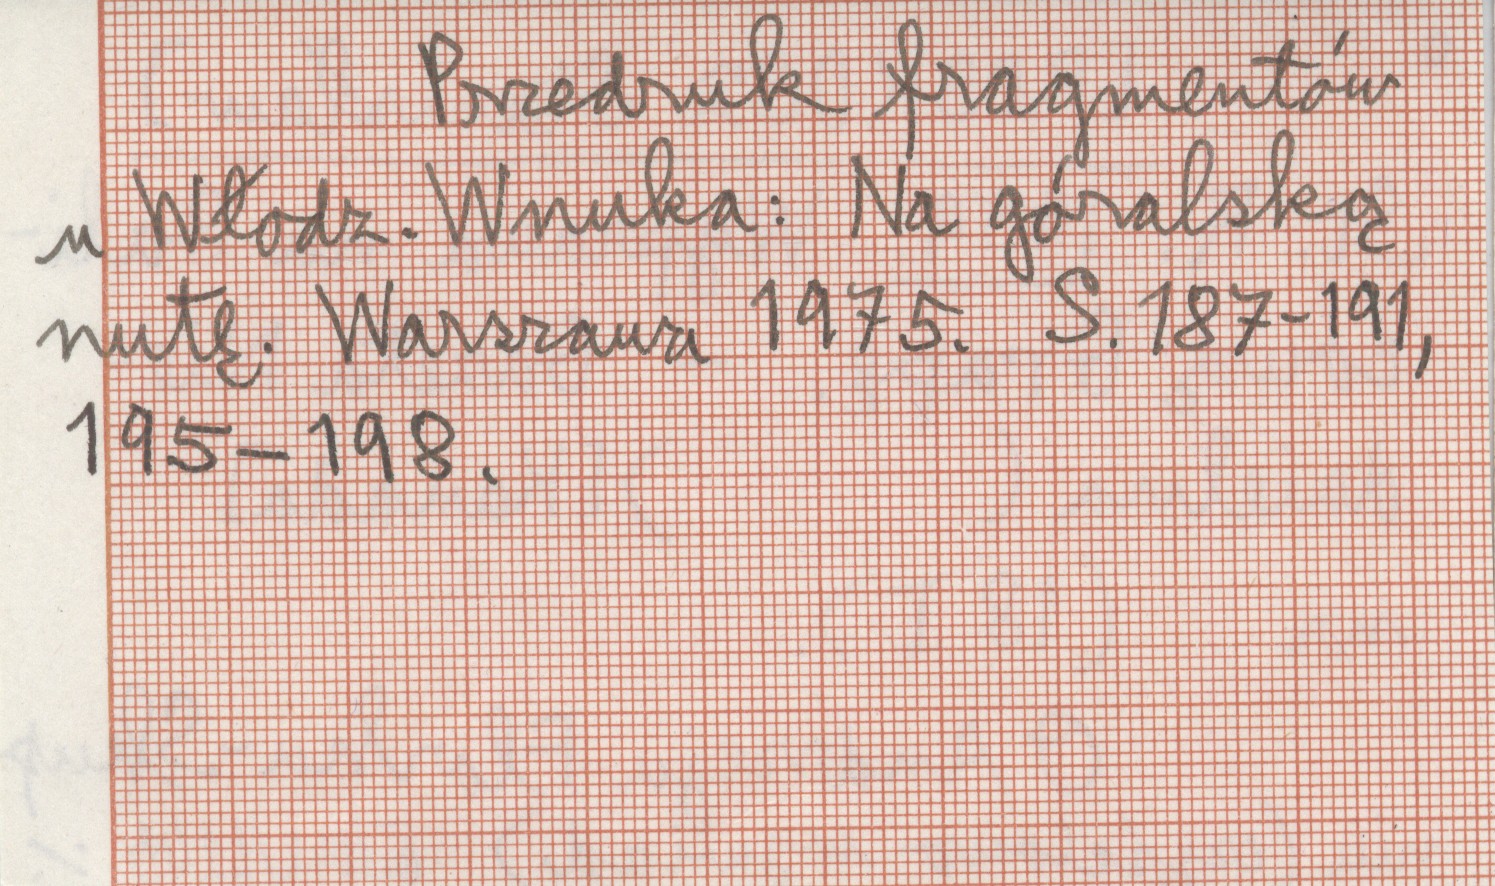 Przedruk fragmentów
u Włodz. Wnuka: Na góralską
nutę. Warszawa 1975. S. 187-191,
195-198.